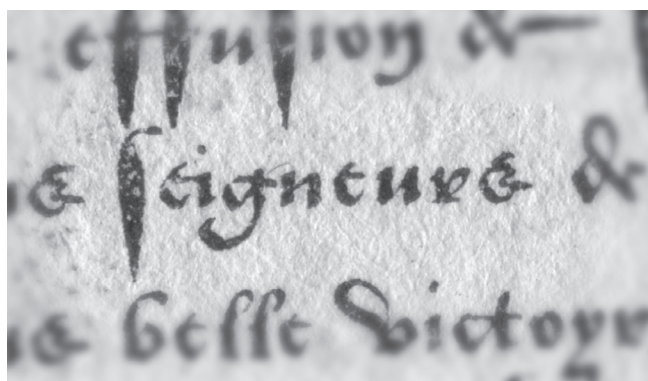 effusion &
ſeigneurs &
belle victoyr